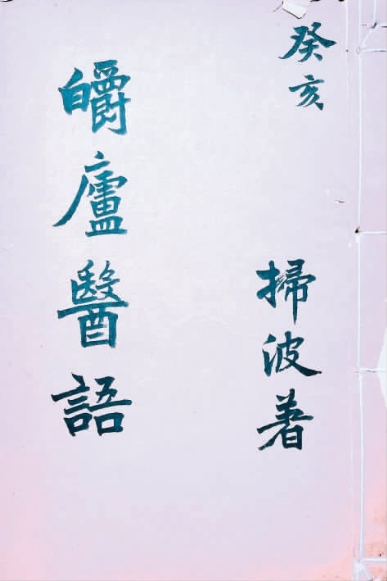 癸亥
掃波著
皭廬醫語